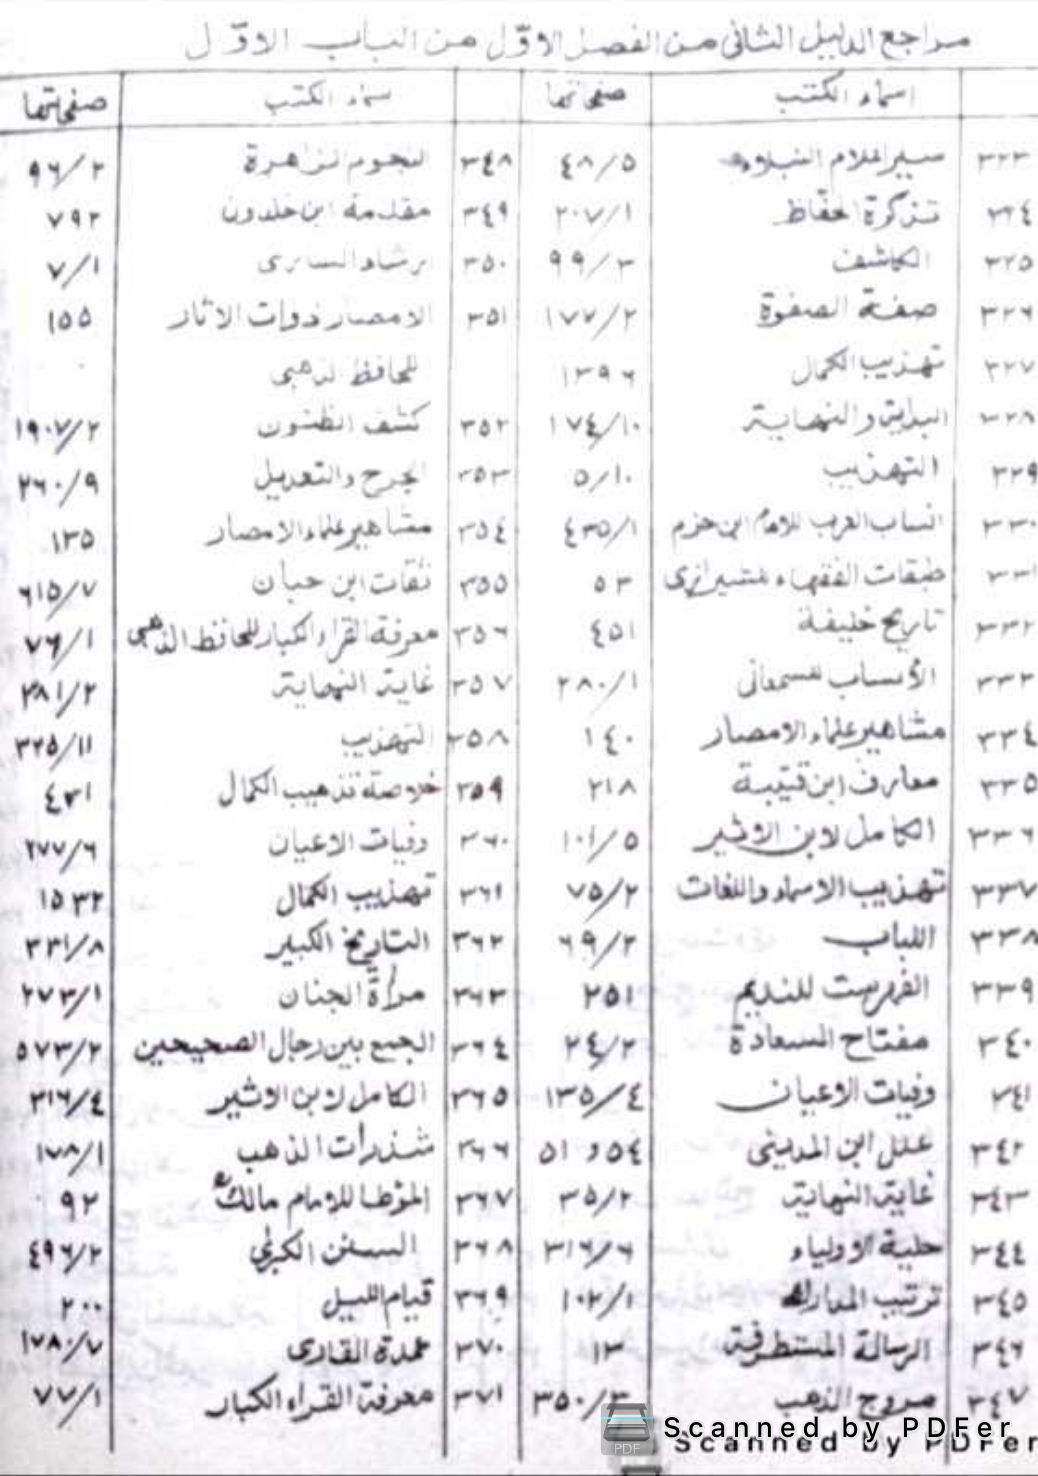 مراجع الدليل الثانى من الفصل الاوّل من الباب الاوّل
اسماء الكتب صفحاتها سماء الكتب صفحاتها
٣٢٣ سير اعلام النبلاء ٤٨/٥ ٣٤٨ النجوم الزاهرة ٩٦/٢
٣٢٤ تذكرة الحفاظ ٢٠٧/١ ٣٤٩ مقدمة ابن خلدون ٧٩٢
٣٢٥ الكاشف ٩٩/٣ ٣٥٠ ارشاد السارى ٧/١
٣٢٦ صفة الصفوة ١٧٧/٢ ٣٥١ الامصار ذوات الاثار ١٥٥
٣٢٧ تهذيب الكمال ١٣٩٦ للحافظ الذهبى
٣٢٨ البداية والنهاية ١٧٤/١٠ ٣٥٢ كشف الظنون ١٩٠٧/٢
٣٢٩ التهذيب ٥/١٠ ٣٥٣ الجرح والتعديل ٢٦٠/٩
٣٣٠ انساب العرب للامام ابن حزم ٤٣٥/١ ٣٥٤ مشاهير علماء الامصار ١٣٥
٣٣١ طبقات الفقهاء للشيرازى ٥٣ ٣٥٥ ثقات ابن حبان ٦١٥/٧
٣٣٢ تاريخ خليفة ٤٥١ ٣٥٦ معرفة القراء الكبار للحافظ الذهبى ٧٦/١
٣٣٣ الأنساب للسمعانى ٢٨٠/١ ٣٥٧ غاية النهاية ٣٨١/٢
٣٣٤ مشاهير علماء الامصار ١٤٠ ٣٥٨ التهذيب ٣٢٥/١١
٣٣٥ معارف ابن قتيبة ٢١٨ ٣٥٩ خلاصة تذهيب الكمال ٤٣١
٣٣٦ الكامل لابن الاثير ١٠١/٥ ٣٦٠ وفيات الاعيان ٢٧٧/٦
٣٣٧ تهذيب الاسماء واللغات ٧٥/٢ ٣٦١ تهذيب الكمال ١٥٣٢
٣٣٨ اللباب ٦٩/٢ ٣٦٢ التاريخ الكبير ٣٣١/٨
٣٣٩ الفهرست للنديم ٢٥١ ٣٦٣ مرأة الجنان ٢٧٣/١
٣٤٠ مفتاح السعادة ٢٤/٢ ٣٦٤ الجمع بين رجال الصحيحين ٥٧٣/٢
٣٤١ وفيات الاعيان ١٣٥/٤ ٣٦٥ الكامل لابن الاثير ٣١٦/٤
٣٤٢ علل ابن المدينى ٥٤ و ٥١ ٣٦٦ شذرات الذهب ١٧٨/١
٣٤٣ غاية النهاية ٣٥/٢ ٣٦٧ المؤطا للامام مالك ٩٢
٣٤٤ حلية الاولياء ٣١٦/٦ ٣٦٨ السنن الكبرى ٤٩٦/٢
٣٤٥ ترتيب المدارك ١٠٢/١ ٣٦٩ قيام الليل ٢٠٠
٣٤٦ الرسالة المستطرفة ١٣ ٣٧٠ عمدة القارى ١٧٨٠/٧
٣٤٧ مروج الذهب ٣٥٠/٣ ٣٧١ معرفة القراء الكبار ٧٧/١
PDF Scanned by PDFer
Scanned by PDFer